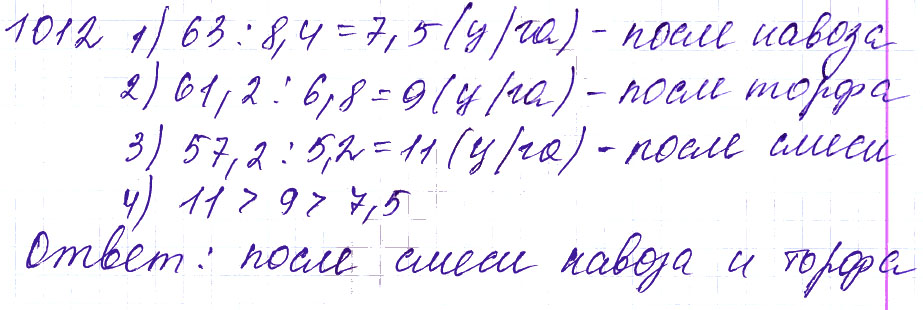 1012 1) 63 : 8,4 = 7,5 (ц/га) - после навоза
2) 61,2 : 6,8 = 9 (ц/га) - после торфа
3) 57,2 : 5,2 = 11 (ц/га) - после смеси
4) 11 > 9 > 7,5
Ответ: после смеси навоза и торфа